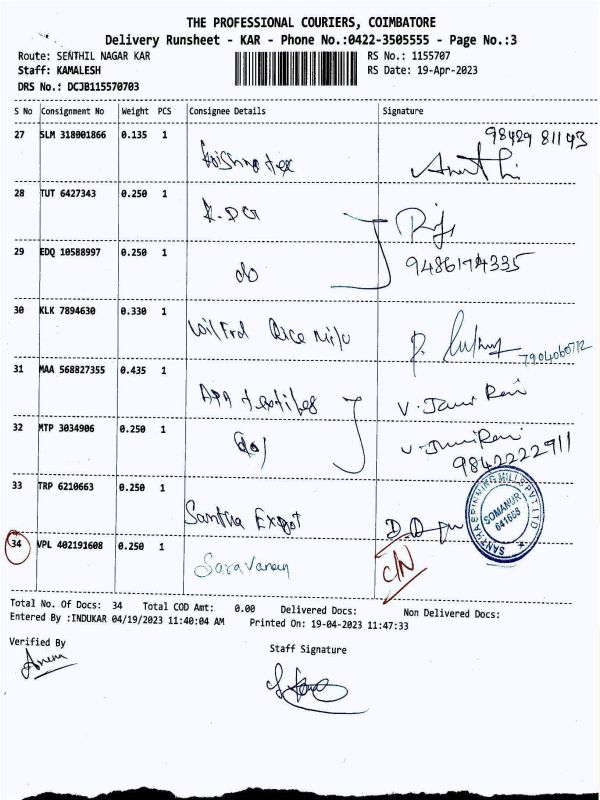 THE PROFESSIONAL COURIERS, COIMBATORE
Delivery Runsheet - KAR - Phone No.:0422-3505555 - Page No.:3
Route: SENTHIL NAGAR KAR RS No.: 1155707
Staff: KAMALESH RS Date: 19-Apr-2023
DRS No.: DCJB115570703
S No Consignment No Weight PCS Consignee Details Signature
27 SLM 318001866 0.135 1 98429 81143
Krishna tex
28 TUT 6427343 0.250 1
29 EDQ 10588997 0.250 1 9486174335
do
30 KLK 7894630 0.330 1
Rice 7904060712
31 MAA 568827355 0.435 1
textiles V.
32 MTP 3034906 0.250 1 V.
(do) 9842222911
33 TRP 6210663 0.250 1
Santha Expot D.
SANTHA SPINNING MILLS PVT LTD
SOMANUR
641668
34 VPL 402191608 0.250 1
Saravanan C/N
Total No. Of Docs: 34 Total COD Amt: 0.00 Delivered Docs: Non Delivered Docs:
Entered By :INDUKAR 04/19/2023 11:40:04 AM Printed On: 19-04-2023 11:47:33
Verified By Staff Signature